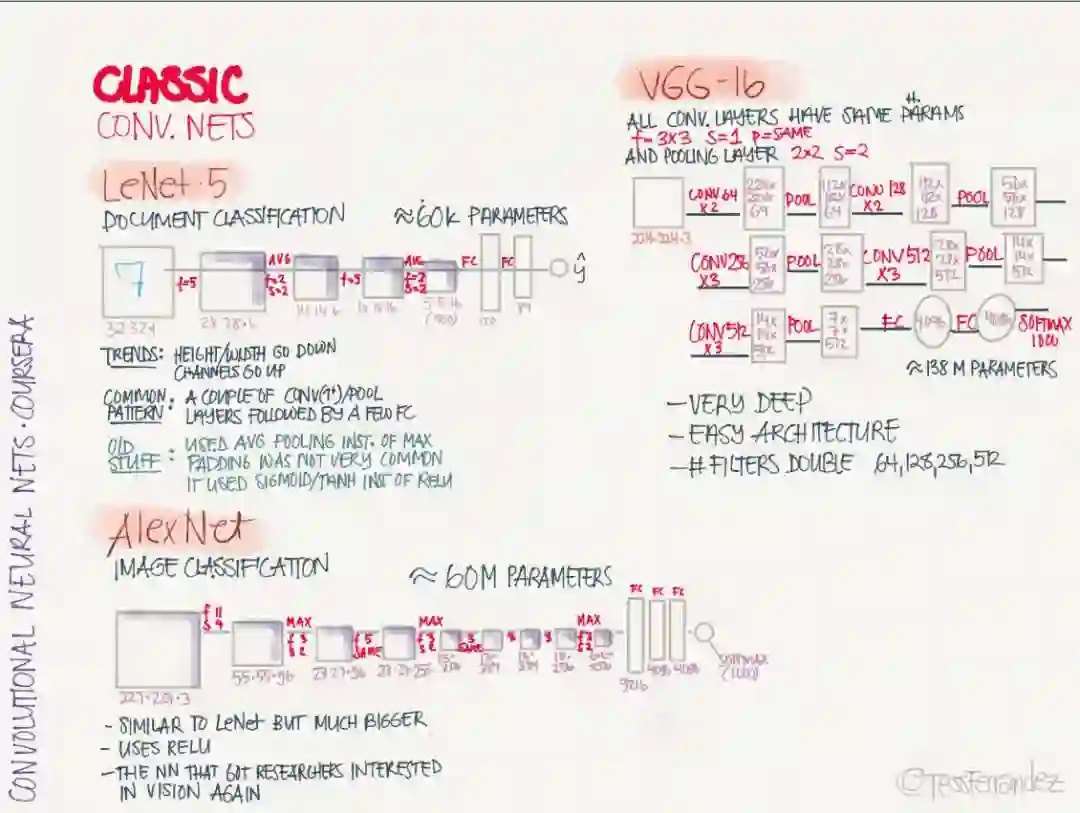 CLASSIC
CONV. NETS
LeNet-5
DOCUMENT CLASSIFICATION ≈60K PARAMETERS
7
f=5
AVG
f=2
S=2
f=5
AVG
f=2
S=2
FC
FC
ŷ
28·28·6
14·14·6
10·10·16
5·5·16
(400)
120
84
TRENDS: HEIGHT/WIDTH GO DOWN
CHANNELS GO UP
COMMON PATTERN: A COUPLE OF CONV(1+)/POOL
LAYERS FOLLOWED BY A FEW FC
OLD STUFF: USED AVG POOLING INST. OF MAX
PADDING WAS NOT VERY COMMON
IT USED SIGMOID/TANH INST OF RELU
AlexNet
IMAGE CLASSIFICATION ≈ 60M PARAMETERS
f 11
S 4
MAX
f 3
S 2
f 5
SAME
MAX
f 3
S 2
3
SAME
MAX
f 3
S 2
FC FC FC
55·55·96
27·27·96
27·27·256
9216
4096 4096
SOFTMAX
(1000)
- SIMILAR TO LeNet BUT MUCH BIGGER
- USES RELU
- THE NN THAT GOT RESEARCHERS INTERESTED
IN VISION AGAIN
VGG-16
#.
ALL CONV. LAYERS HAVE SAME PARAMS
f=3X3 S=1 P=SAME
AND POOLING LAYER 2×2 S=2
224·224·3
CONV 64
X2
224×
224×
64
POOL
112×
112×
64
CONV 128
X2
112×
112×
128
POOL
56×
56×
128
CONV 256
X3
56×
56×
256
POOL
28×
28×
256
CONV 512
X3
28×
28×
512
POOL
14×
14×
512
CONV 512
X3
14×
14×
512
POOL
7×
7×
512
FC
4096
FC
4096
SOFTMAX
1000
≈138 M PARAMETERS
- VERY DEEP
- EASY ARCHITECTURE
- # FILTERS DOUBLE 64,128,256,512
CONVOLUTIONAL NEURAL NETS · COURSERA
@TessFerrandez